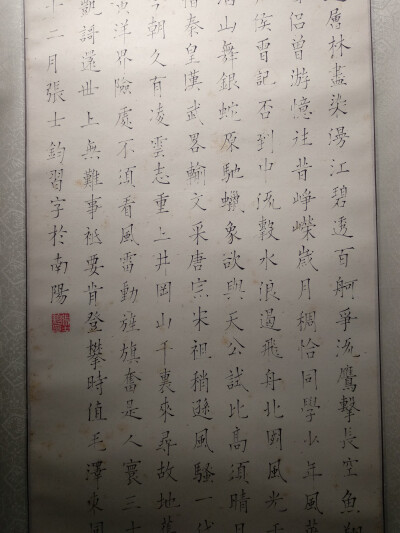 層林盡染漫江碧透百舸爭流鷹擊長空魚翔
侶曾游憶往昔崢嶸歲月稠恰同學少年風華
侯曾記否到中流擊水浪遏飛舟北國風光千
山舞銀蛇原馳蠟象欲與天公試比高須晴日
惜秦皇漢武畧輸文采唐宗宋祖稍遜風騷一代
今朝久有凌雲志重上井岡山千裏來尋故地舊
黃洋界險處不須看風雷動旌旗奮是人寰三十
凱謌還世上無難事衹要肯登攀時值毛澤東同
十二月張士鈞習字於南陽